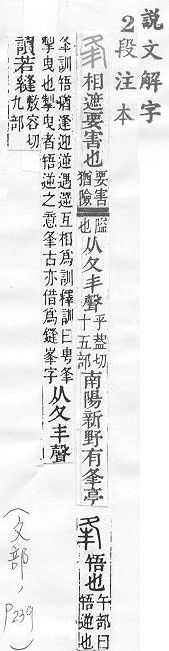 說文解字
2段注本
相遮要害也
要害猶險
隘也
从夂丰聲
乎蓋切
十五部
南陽新野有夆亭
啎也
午部曰
啎逆也
夆訓啎猶逢迎逆遇遻互相爲訓釋訓曰甹夆
掣曳也掣曳者啎逆之意夆古亦借爲縫夆字
从夂丰聲
讀若縫
敷容切
九部
(夂部, P239)